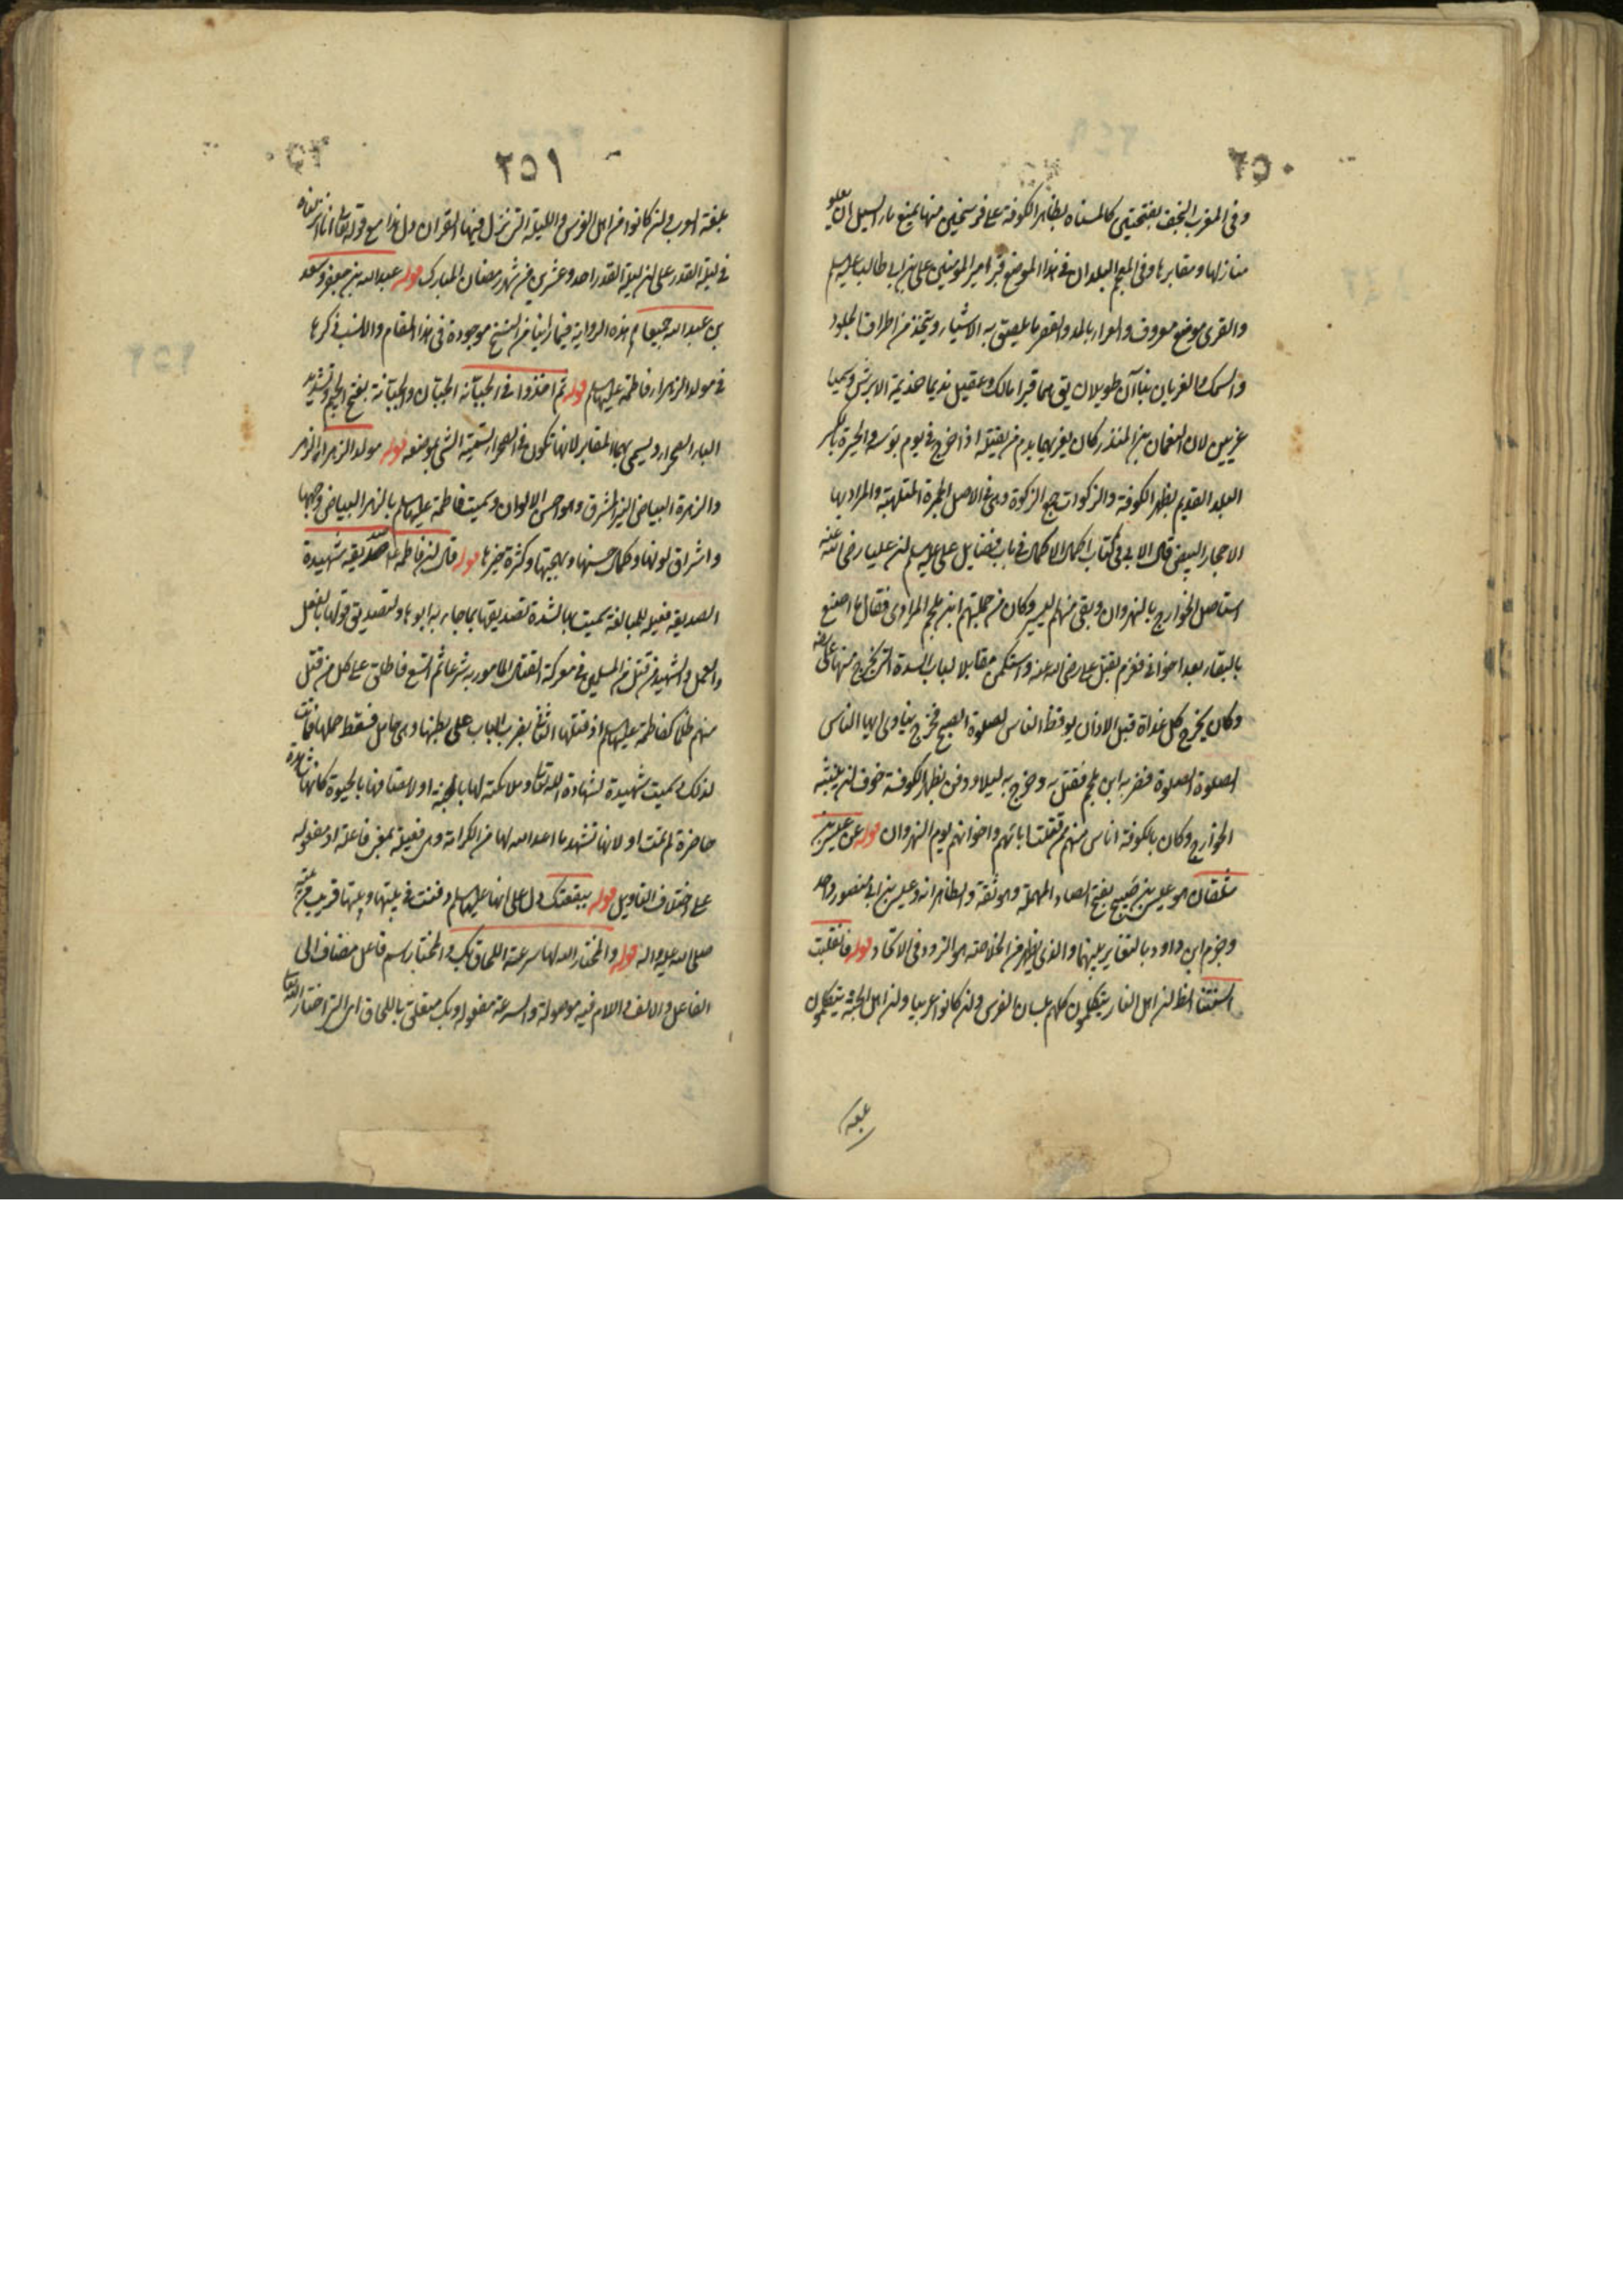 ٢٥٠
وفى المغرب النجف بفتحتين كالمسناة بظاهر الكوفة على فرسخين منها يمنع ماء السيل ان يعلو
منازلها ومقابرها وفى المعجم البلدان فى هذا الموضع قبر امير المؤمنين على بن ابى طالب عليه السلم
والقرى موضع معروف والغراء بالمد والقصر ما يلصق به الاشياء ويتخذ من اطراف الجلود
والسمك والغريان بناآن طويلان يق هما قبرا مالك وعقيل نديما جذيمة الابرش وسميا
غريين لان النعمان بن المنذر كان يغريهما بدم من يقتله اذا خرج فى يوم بؤسه والحيرة بالكسر
البلد القديم بظهر الكوفة والزكوات جمع الزكوة وهى فى الاصل الجمرة الملتهبة والمراد بها
الاحجار البيض قال الابى فى كتاب اكمال الاكمال فى باب فضايل على عليه السلم ان عليا رضى الله عنه
استاصل الخوارج بالنهروان وبقى منهم اليسير وكان من جملتهم ابن ملجم المرادى فقال ما اصنع
بالبقاء بعد اخوانى فعزم بقتل على رضى الله عنه واستكمن مقابلا لباب السدة التى يخرج منها على
وكان يخرج كل غداة قبل الاذان يوقظ الناس لصلوة الصبح فخرج ينادى ايها الناس
الصلوة الصلوة فضربه ابن ملجم فقتل به وخرج به ليلا ودفن بظهر الكوفة خوف ان ينبشه
الخوارج وكان بالكوفة اناس منهم ممن قتلت ابائهم واخوانهم يوم النهروان قوله عن عيسى بن
شلقان هو عيسى بن صبيح بفتح الصاد المهملة وهو ثقة والظاهر انه وعيسى بن ابى منصور واحد
وجزم ابن داود بالتغاير بينهما والذى يظهر من الخلاصة هو التردد فى الاتحاد قوله فانقلبت
السنتنا الظ ان اهل النار يتكلمون كلهم بلسان الفرس وان كانوا عربيا وان اهل الجنة يتكلمون
بلغة
٢٥١
بلغة العرب وان كانوا من اهل الفرس والليلة التى نزل فيها القران دل هذا مع قوله تعالى انا انزلناه
فى ليلة القدر على ان ليلة القدر احد وعشرين من شهر رمضان المبارك قوله عبدالله بن جعفر وسعد
بن عبد الله جميعا هذه الرواية فيما راينا من النسخ موجودة فى هذا المقام والانسب ذكرها
فى مولد الزهراء فاطمة عليها السلم قوله ثم اخذوا فى الجبانة الجبان والجبانة بفتح الجيم وتشديد
الباء الصحراء ويسمى بهما المقابر لانها تكون فى الصحراء تسمية الشى بموضعه قوله مولد الزهراء الزهر
والزهرة البياض النير المشرق وهو احسن الالوان وسميت فاطمة عليها السلم بالزهراء لبياض وجهها
واشراق لونها وكمال حسنها وبهجتها وكثرة خيرها قوله قال ان فاطمة صديقة شهيدة
الصديقة فعيلة للمبالغة سميت بها لشدة تصديقها بما جاء به ابوها ولتصديق قولها بالفعل
والعمل والشهيد من قتل من المسلمين فى معركة القتال المامور به شرعا ثم اتسع فاطلق على كل من قتل
منهم ظلما كفاطمة عليها السلم اذ قتلها الثانى بضرب الباب على بطنها وهى حامل فسقط حملها فماتت
لذلك او سميت شهيدة لشهادة الله تعالى وملائكته لها بالجنة او لاتصافها بالحيوة كانها شاهدة
حاضرة لم تمت او لانها تشهد ما اعد الله لها من الكرامة وهى فعيلة بمعنى فاعلة او مفعولة
على اختلاف التاويل قوله ببقعتك دل على انها عليها السلم دفنت فى بيتها وبيتها قريب من
صلى الله عليه واله قوله والمختار الله لها سرعة اللحاق بك والمختار اسم فاعل مضاف الى
الفاعل والالف واللام فيه موصولة والسرعة مفعوله وبك متعلق باللحاق اى التى اختار الله تعالى